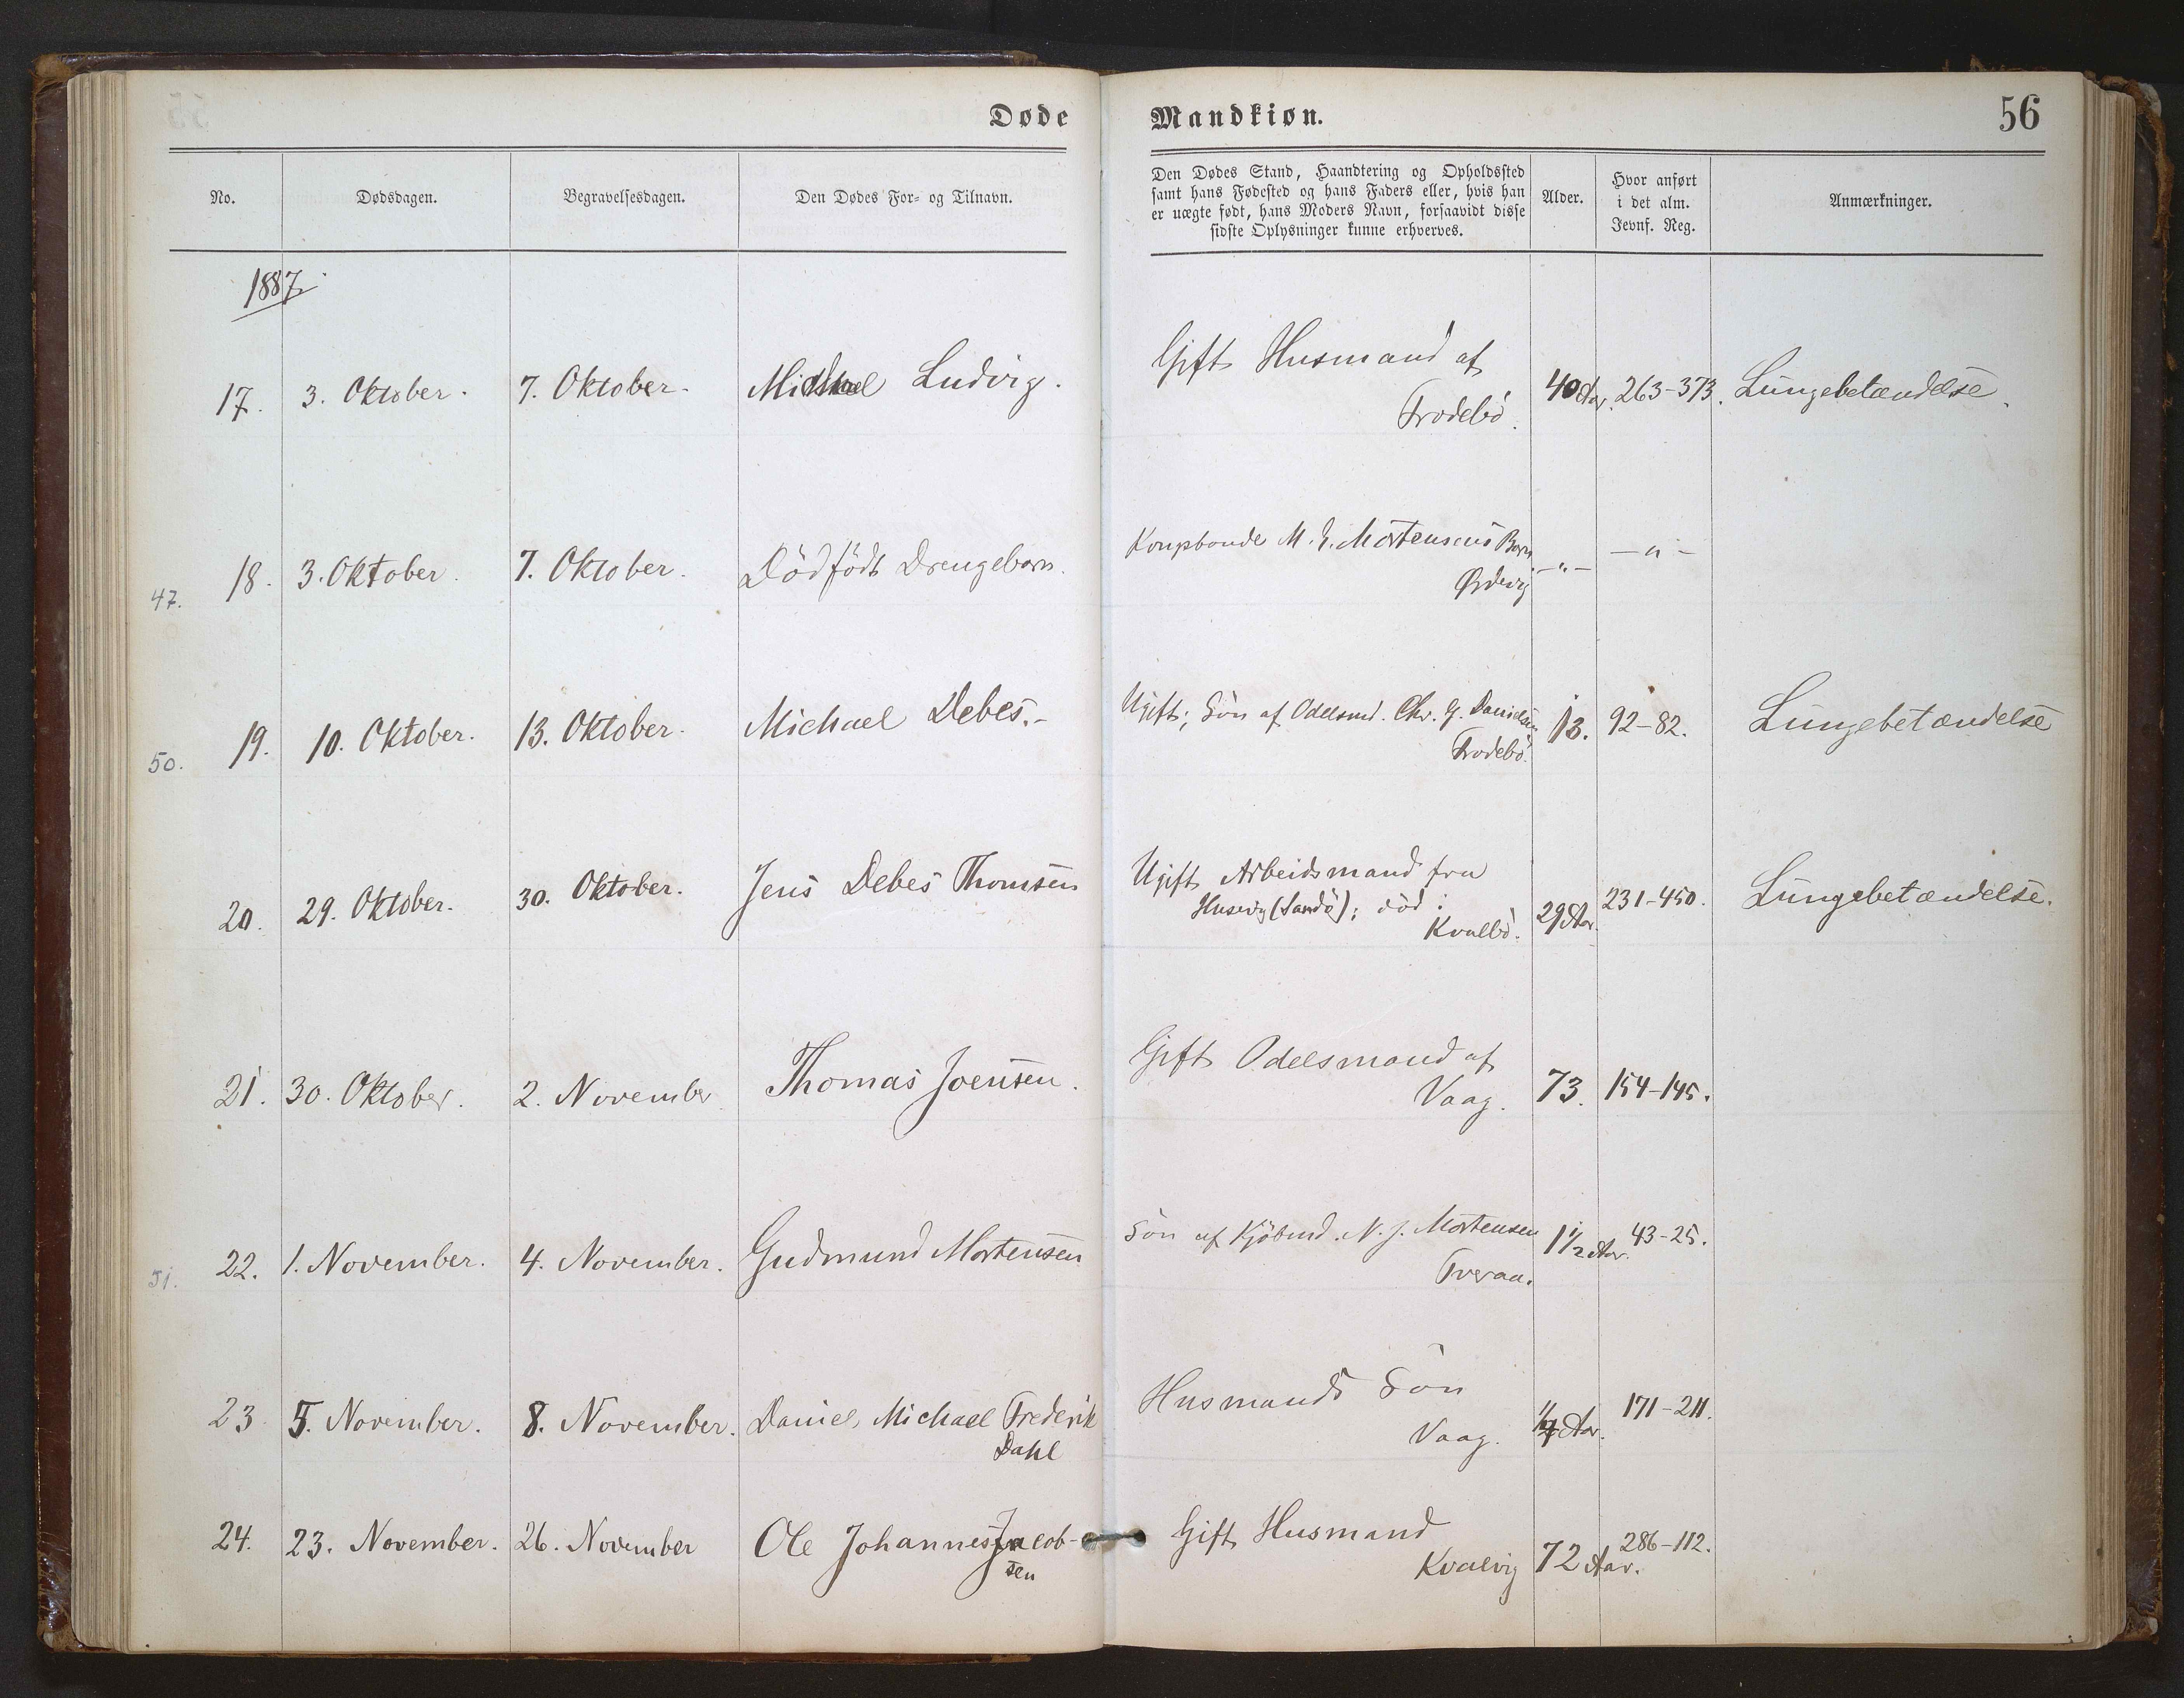 Døde Mandkiøn. 56
No. Dødsdagen. Begravelsesdagen. Den Dødes For- og Tilnavn.
Den Dødes Stand, Haandtering og Opholdssted
samt hans Fødested og hans Faders eller, hvis han
er uægte født, hans Moders Navn, forsaavidt disse
sidste Oplysninger kunne erhverves.
Alder.
Hvor anført
i det alm.
Jevnf. Reg.
Anmærkninger.
1887.
17. 3. Oktober. 7. Oktober. Michael Ludvig. Gift Husmand af
Frodebö. 40 Aar. 263-373. Lungebetændelse.
47. 18. 3. Oktober. 7. Oktober. Dödfödt Drengebarn. M. Mortensens Barn
-"- -"-
50. 19. 10. Oktober. 13. Oktober. Michael Debes. Ugift; Sön af Odelsmd. Chr. G. Danielsen
Frodebö. 13. 92-82. Lungebetændelse
20. 29. Oktober. 30. Oktober. Jens Debes Thomsen Ugift Arbeidsmand fra
Husevig (Sandö); död i
Kvalbö. 29 Aar. 231-450. Lungebetændelse.
21. 30. Oktober. 2. November Thomas Joensen. Gift Odelsmand af
Vaag. 73. 154-145.
51. 22. 1. November. 4. November. Gudmund Mortensen Sön af Kjöbmd. N. J. Mortensen
Tveraa. 1 1/2 Aar. 43-25.
23 5. November. 8. November. Daniel Michael Frederik
Dahl Husmands Sön
Vaag. Aar. 171-211.
24. 23. November. 26. November Ole Johannes Jacob-
sen Gift Husmand
Kvalvig 72 Aar. 286-112.